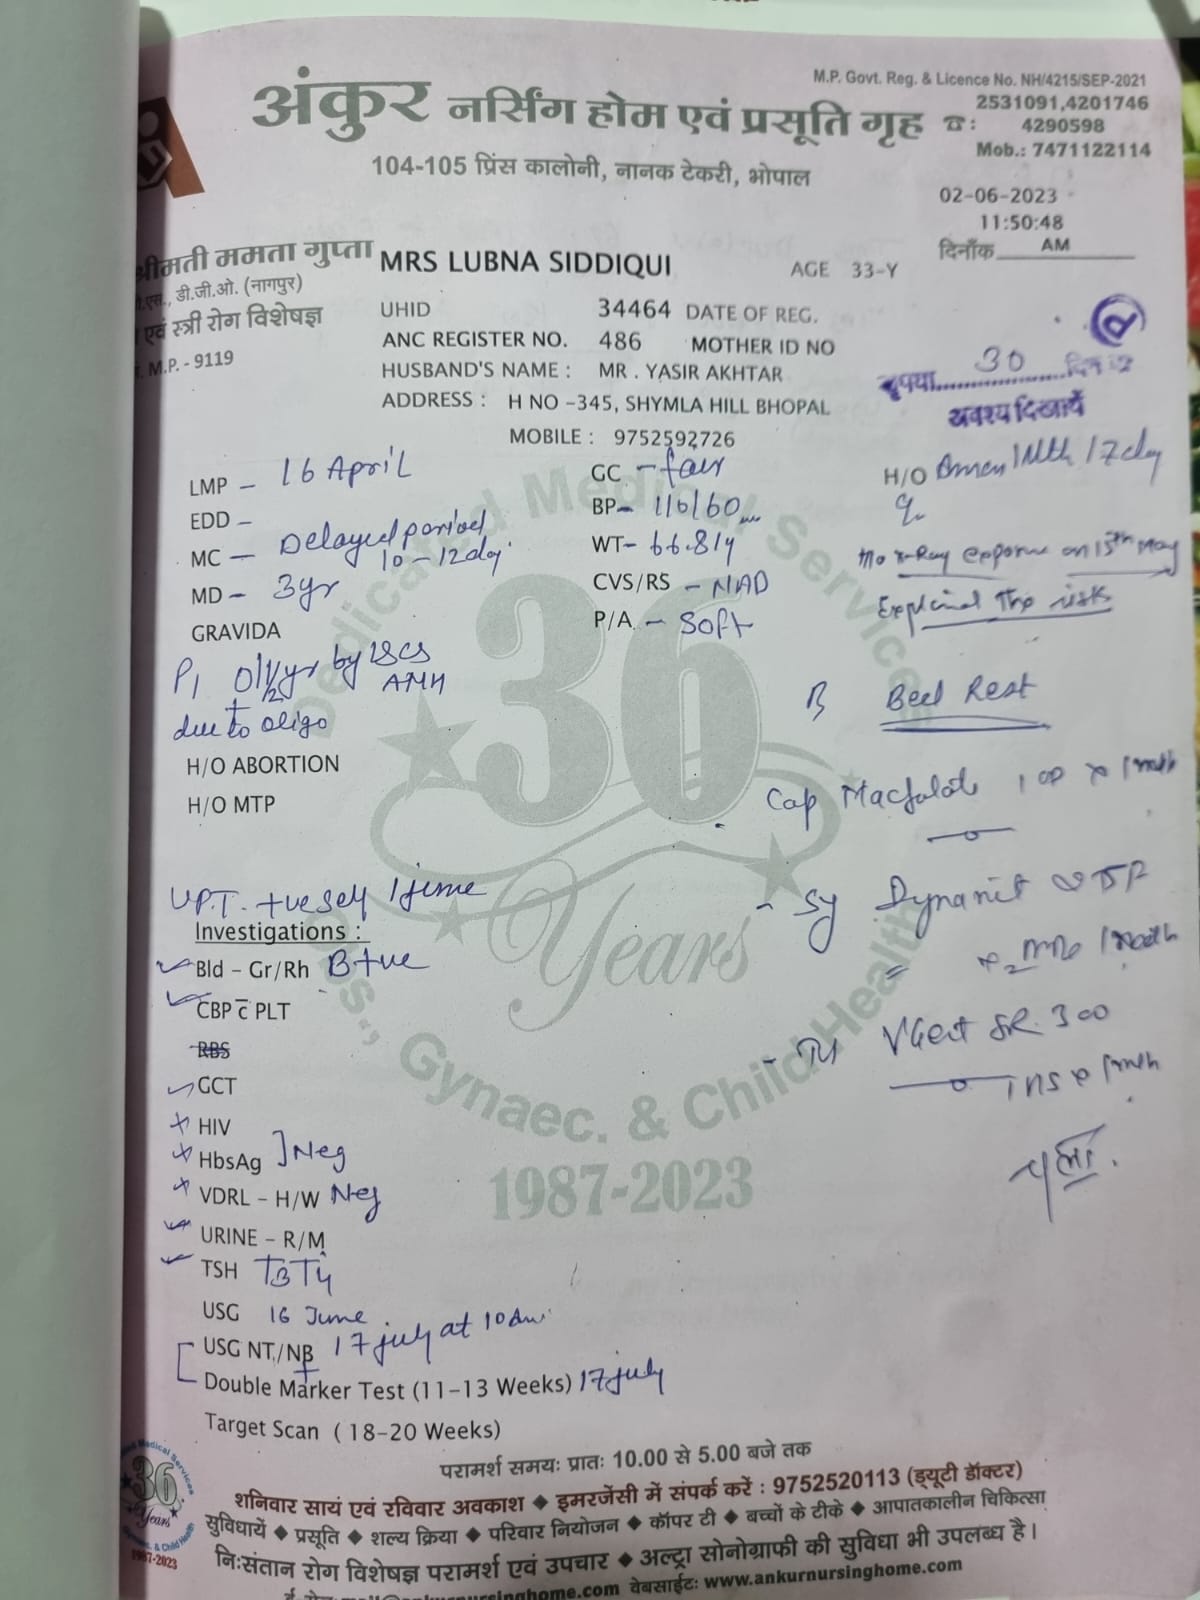 M.P. Govt. Reg. & Licence No. NH/4215/SEP-2021
अंकुर नर्सिंग होम एवं प्रसूति गृह
☎: 2531091,4201746
4290598
Mob.: 7471122114
104-105 प्रिंस कालोनी, नानक टेकरी, भोपाल
02-06-2023
11:50:48
दिनाँक AM
श्रीमती ममता गुप्ता
डी.जी.ओ. (नागपुर)
एवं स्त्री रोग विशेषज्ञ
M.P. - 9119
MRS LUBNA SIDDIQUI AGE 33-Y
UHID 34464 DATE OF REG.
ANC REGISTER NO. 486 MOTHER ID NO
HUSBAND'S NAME : MR . YASIR AKHTAR
ADDRESS : H NO -345, SHYMLA HILL BHOPAL
MOBILE : 9752592726
30
अवश्य दिखायें
LMP - 16 April
EDD -
MC - Delayed period
10-12 day
MD - 3yr
GRAVIDA
P1 by LSCS
due to oligo
H/O ABORTION
H/O MTP
GC - fair
BP- 110/60
WT-
CVS/RS - NAD
P/A - Soft
H/O 1Mth 17 day
x-Ray on 15th May
Explained the risks
Bed Rest
Cap Macfolate
Sy
SR 300
UPT. +ve self 1 time
Investigations :
Bld - Gr/Rh B+ve
CBP c̅ PLT
RBS
GCT
HIV
HbsAg ] Neg
VDRL - H/W Neg
URINE - R/M
TSH T3T4
USG 16 June
USG NT/NB 17 july at 10 am
+
Double Marker Test (11-13 Weeks) 17 july
Target Scan ( 18-20 Weeks)
Dedicated Medical Services
36 Years
Obs., Gynaec. & Child Health
1987-2023
परामर्श समयः प्रातः 10.00 से 5.00 बजे तक
शनिवार सायं एवं रविवार अवकाश ◆ इमरजेंसी में संपर्क करें : 9752520113 (ड्यूटी डॉक्टर)
सुविधायें ◆ प्रसूति ◆ शल्य क्रिया ◆ परिवार नियोजन ◆ कॉपर टी ◆ बच्चों के टीके ◆ आपातकालीन चिकित्सा
निःसंतान रोग विशेषज्ञ परामर्श एवं उपचार ◆ अल्ट्रा सोनोग्राफी की सुविधा भी उपलब्ध है।
वेबसाईटः www.ankurnursinghome.com
36
Years
1987-2023